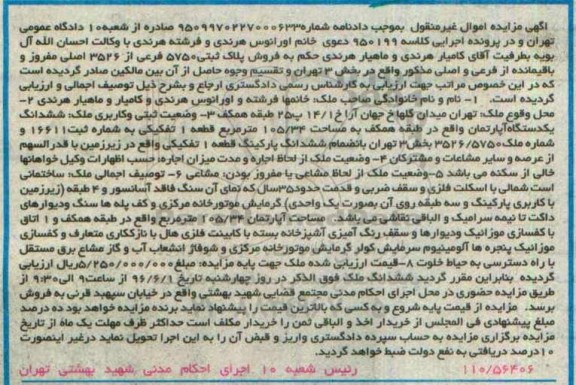 آگهی مزایده اموال غیرمنقول بموجب دادنامه شماره ۹۵۰۹۹۷۰۲۲۷۰۰۰۶۳۳ صادره از شعبه۱۰ دادگاه عمومی
تهران و در پرونده اجرایی کلاسه ۹۵۰۱۹۹ دعوی خانم اورانوس هرندی و فرشته هرندی با وکالت احسان الله آل
بویه بطرفیت آقای کامیار هرندی و ماهیار هرندی حکم به فروش پلاک ثبتی۵۷۵۰ فرعی از ۳۵۲۶ اصلی مفروز و
باقیمانده از فرعی و اصلی مذکور واقع در بخش ۳ تهران و تقسیم وجوه حاصل از آن بین مالکین صادر گردیده است
که در این خصوص مراتب جهت ارزیابی به کارشناس رسمی دادگستری ارجاع و بشرح ذیل توصیف اجمالی و ارزیابی
گردیده است. ۱- نام و نام خانوادگی صاحب ملک: خانمها فرشته و اورانوس هرندی و کامیار و ماهیار هرندی ۲-
محل وقوع ملک: تهران میدان گلها خ جهان آرا خ۱۴/۱ پ۲۵ طبقه همکف ۳- وضعیت ثبتی وکاربری ملک: ششدانگ
یکدستگاه آپارتمان واقع در طبقه همکف به مساحت ۱۰۵/۳۴ مترمربع قطعه ۱ تفکیکی به شماره ثبت۱۶۶۱۱ و
شماره ملک۳۵۲۶/۵۷۵۰ بخش۳ تهران بانضمام ششدانگ پارکینگ قطعه ۱ تفکیکی واقع در زیرزمین با قدرالسهم
از عرصه و سایر مشاعات و مشترکان ۴- وضعیت ملک از لحاظ اجاره و مدت میزان اجاره: حسب اظهارات وکیل خواهانها
خالی از سکنه می باشد ۵-وضعیت ملک از لحاظ مشاعی یا مفروز بودن: مشاعی ۶- توصیف اجمالی ملک: ساختمانی
است شمالی با اسکلت فلزی و سقف ضربی و قدمت حدود۳۵سال که نمای آن سنگ فاقد آسانسور و ۴ طبقه (زیرزمین
با کاربری پارکینگ و سه طبقه روی آن بصورت یک واحدی) گرمایش موتورخانه مرکزی و کف پله ها سنگ ودیوارهای
داکت تا نیمه سرامیک و الباقی نقاشی می باشد. مساحت آپارتمان ۱۰۵/۳۴ مترمربع واقع در طبقه همکف و ۱ اتاق
با کفسازی موزائیک ودیوارها و سقف رنگ آمیزی آشپزخانه بسته با کابینت فلزی هال با نازککاری متعارف و کفسازی
موزائیک پنجره ها آلومینیوم سرمایش کولر گرمایش موتورخانه مرکزی و شوفاژ انشعاب آب و گاز مشاع برق مستقل
با راه دسترسی به حیاط خلوت ۸-قیمت ارزیابی شده ملک جهت پایه مزایده: مبلغ۵/۲۵۰/۰۰۰/۰۰۰ریال ارزیابی
گردیده بنابراین مقرر گردید ششدانگ ملک فوق الذکر در روز چهارشنبه تاریخ ۹۶/۶/۱ از ساعت۹ الی۹:۳۰ از
طریق مزایده حضوری در محل اجرای احکام مدنی مجتمع قضایی شهید بهشتی واقع در خیابان سپهبد قرنی به فروش
برسد. مزایده از قیمت پایه شروع و به کسی که بالاترین قیمت را پیشنهاد نماید برنده مزایده خواهد بود ده درصد
مبلغ پیشنهادی فی المجلس از خریدار اخذ و الباقی ثمن را خریدار مکلف است حداکثر ظرف مهلت یک ماه از تاریخ
مزایده برگزاری مزایده به حساب سپرده دادگستری واریز و قبض آن را به این اجرا تحویل نماید درغیر اینصورت
۱۰درصد دریافتی به نفع دولت ضبط خواهد گردید.
۱۱۰/۵۶۴۰۶ رئیس شعبه ۱۰ اجرای احکام مدنی شهید بهشتی تهران